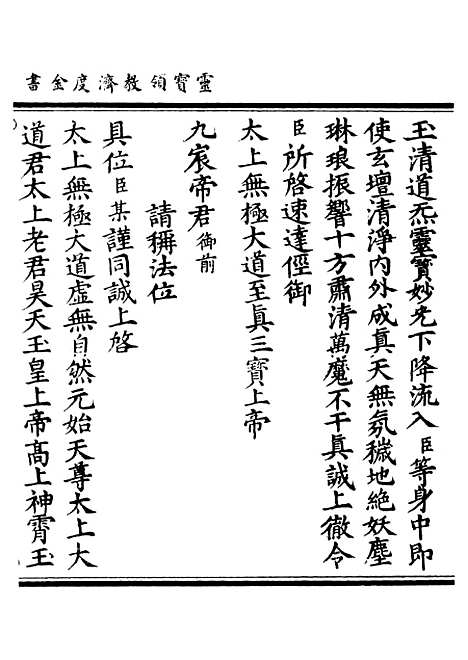 靈寶領教濟度金書
玉清道炁靈寶妙光下降流入臣等身中即
使玄壇清淨內外成真天無氛穢地絶妖塵
琳琅振響十方肅清萬魔不干真誠上徹令
臣所啓速達徑御
太上無極大道至真三寶上帝
九宸帝君御前
請稱法位
具位臣某謹同誠上啓
太上無極大道虛無自然元始天尊太上大
道君太上老君昊天玉皇上帝高上神霄玉